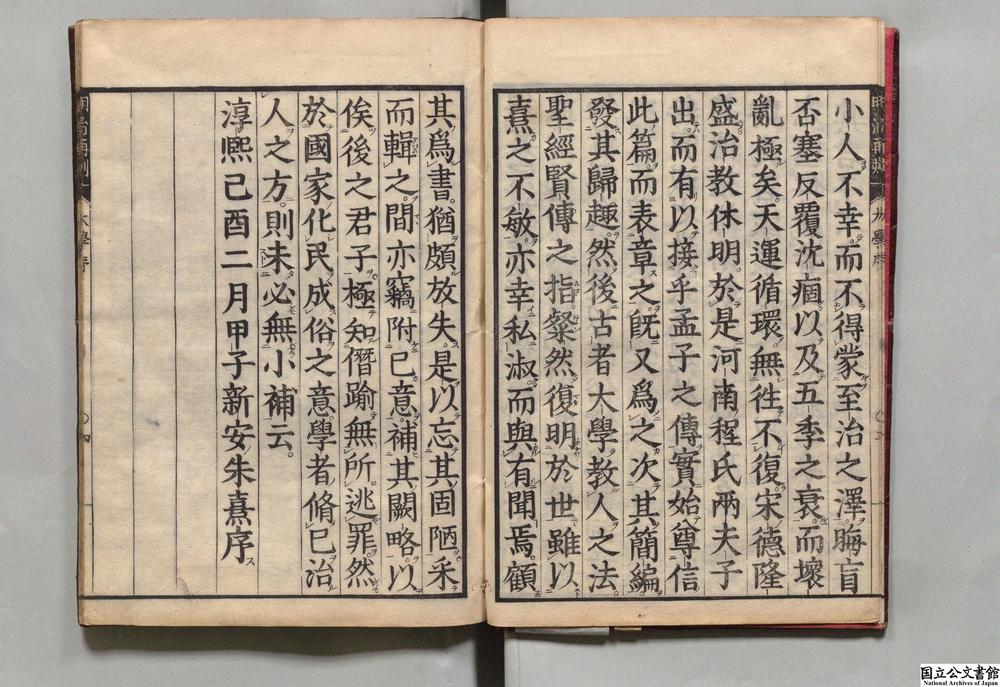 小人不幸而不得蒙至治之澤晦盲
否塞反覆沈痼以及五季之衰而壞
亂極矣天運循環無徃不復宋德隆
盛治教休明於是河南程氏兩夫子
出而有以接乎孟子之傳實始尊信
此篇而表章之旣又爲之次其簡編
發其歸趣然後古者大學教人之法
聖經賢傳之指粲然復明於世雖以
熹之不敏亦幸私淑而與有聞焉顧
其爲書猶頗放失是以忘其固陋采
而輯之間亦竊附己意補其闕略以
俟後之君子極知僭踰無所逃罪然
於國家化民成俗之意學者脩己治
人之方則未必無小補云。
淳熙己酉二月甲子新安朱熹序
国立公文書館
National Archives of Japan